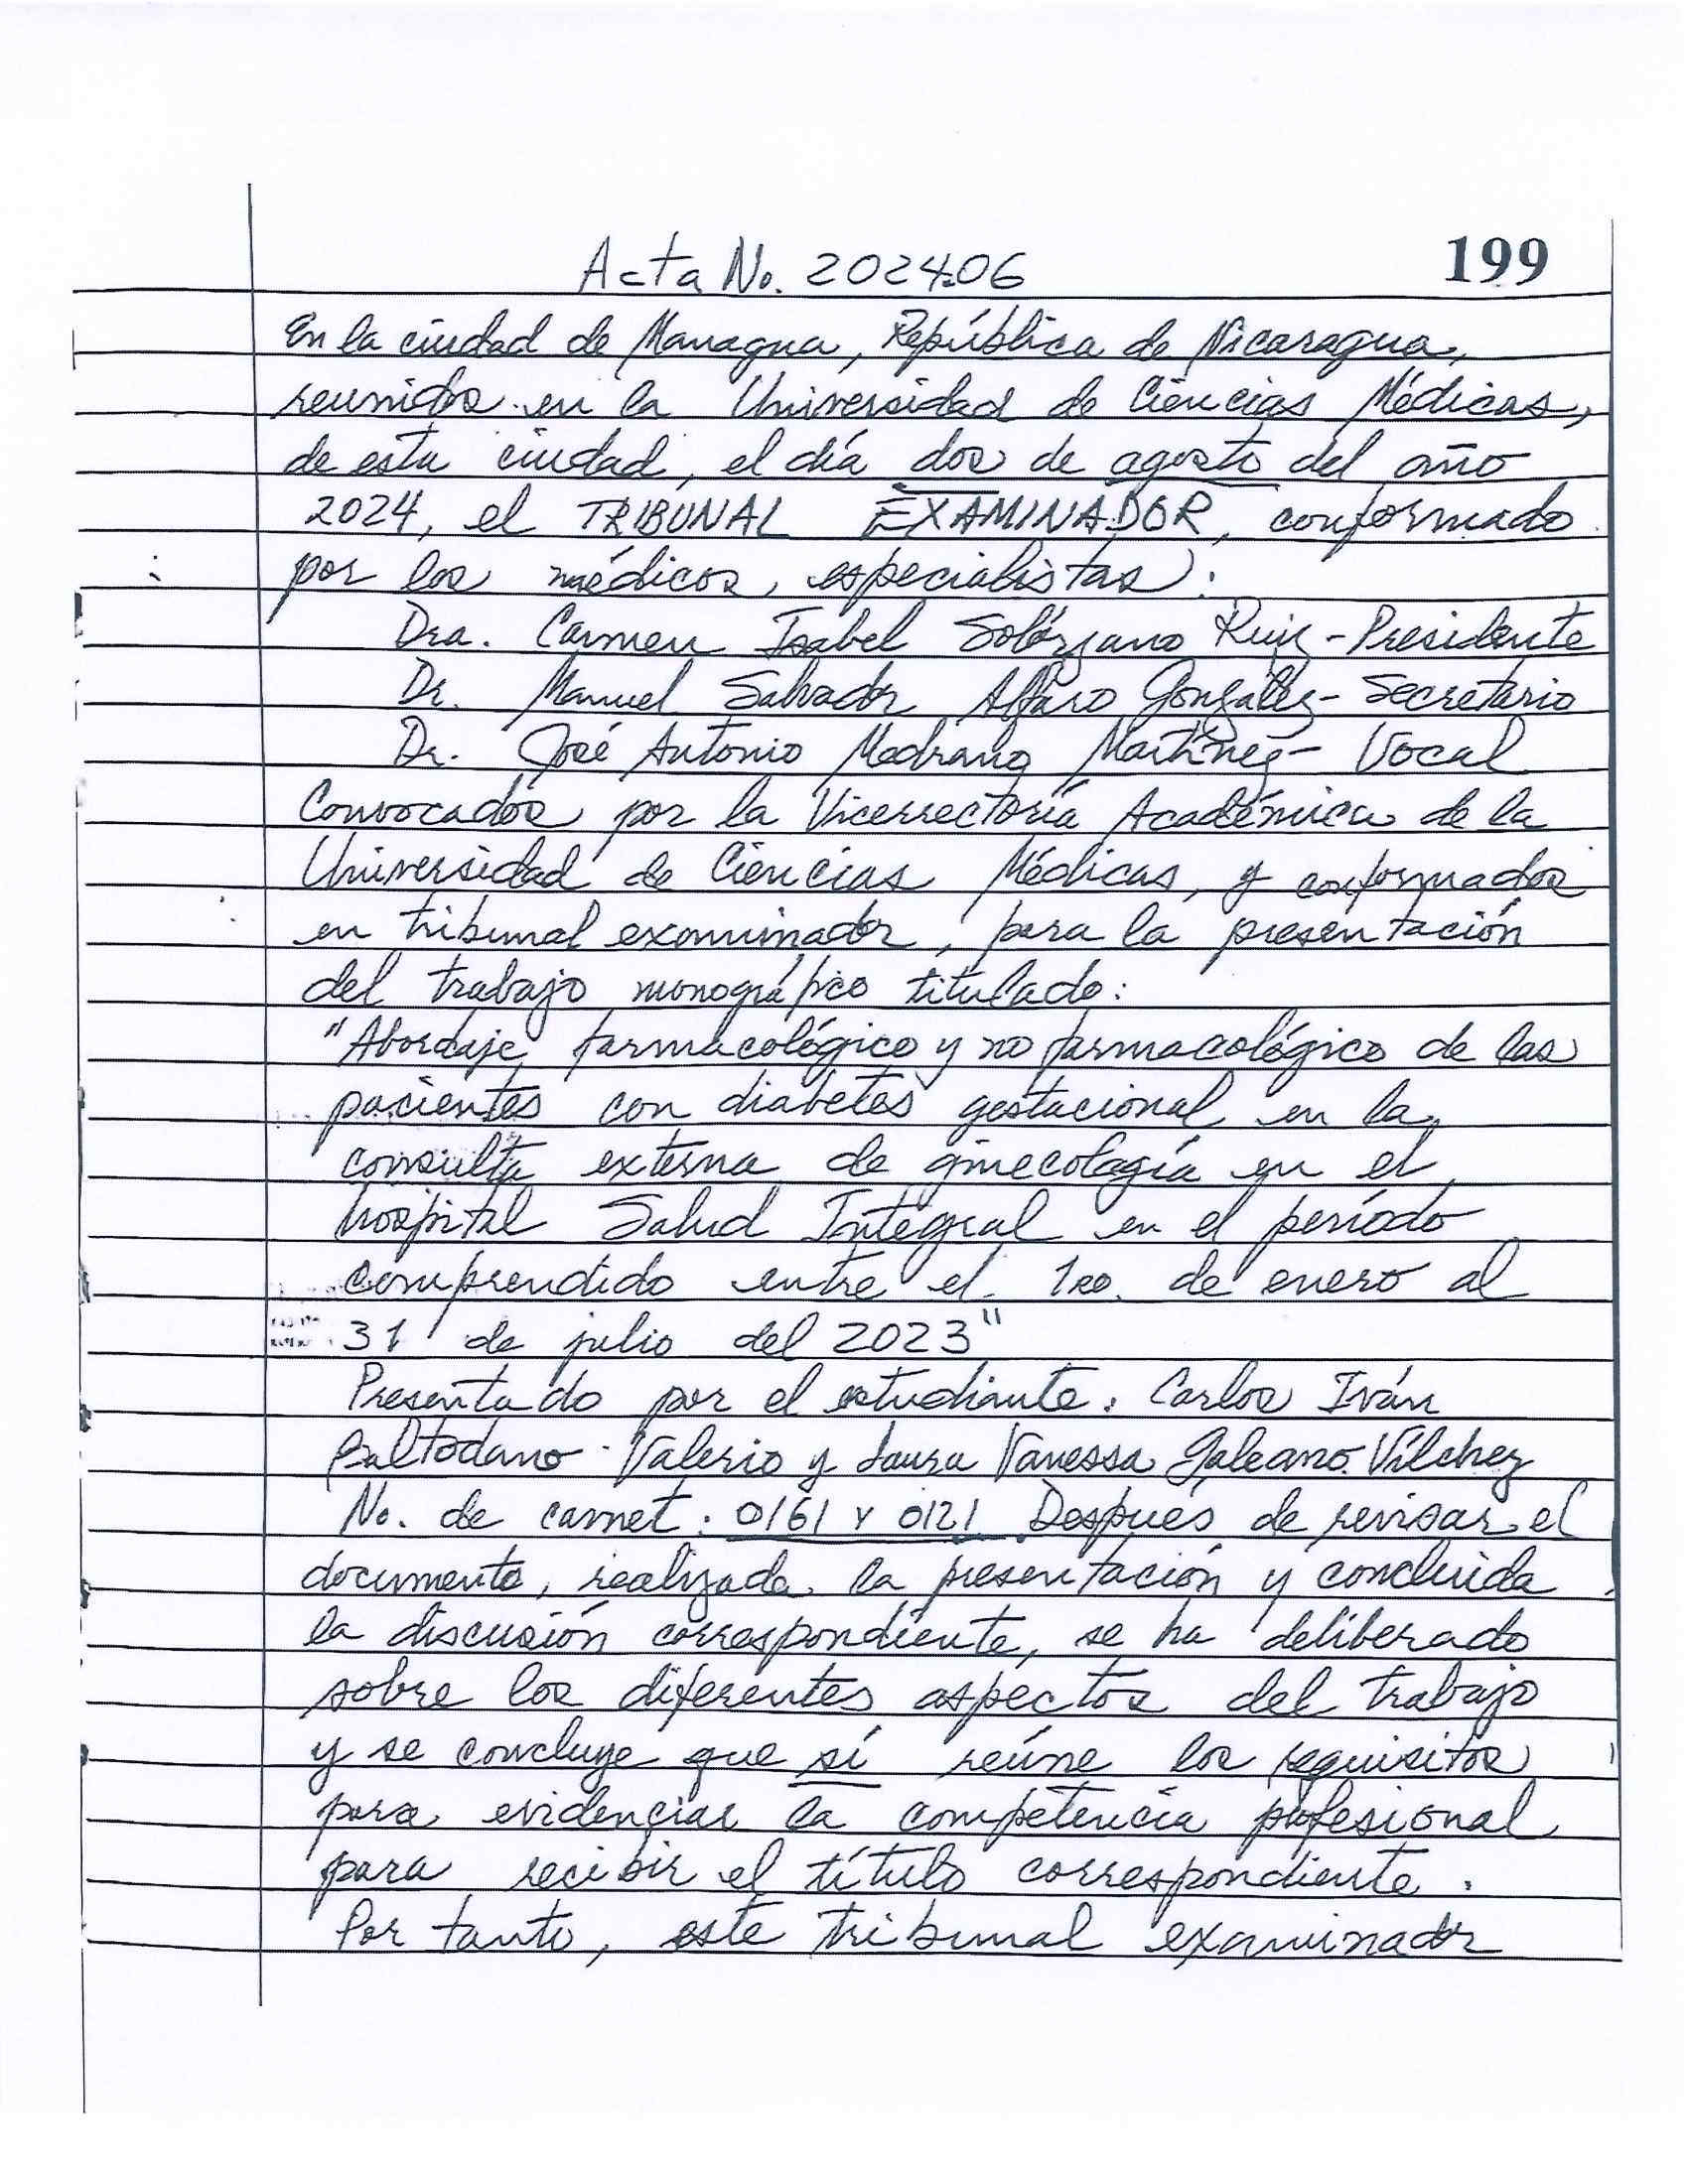 Acta No. 2024-06
199
En la ciudad de Managua, República de Nicaragua,
reunidos en la Universidad de Ciencias Médicas,
de esta ciudad, el día dos de agosto del año
2024, el TRIBUNAL EXAMINADOR, conformado
por los médicos, especialistas:
Dra. Carmen Isabel Solórzano Ruiz - Presidente
Dr. Manuel Salvador Alfaro González - Secretario
Dr. José Antonio Medrano Martínez - Vocal
Convocados por la Vicerrectoría Académica de la
Universidad de Ciencias Médicas, y conformados
en tribunal examinador, para la presentación
del trabajo monográfico titulado:
"Abordaje farmacológico y no farmacológico de las
pacientes con diabetes gestacional en la
consulta externa de ginecología en el
hospital Salud Integral en el período
comprendido entre el 1ro. de enero al
31 de julio del 2023"
Presentado por el estudiante: Carlos Iván
Baltodano Valerio y Laura Vanessa Galeano Vílchez
No. de carnet: 0161 y 0121. Después de revisar el
documento, realizada la presentación y concluida
la discusión correspondiente, se ha deliberado
sobre los diferentes aspectos del trabajo
y se concluye que sí reúne los requisitos
para evidenciar la competencia profesional
para recibir el título correspondiente.
Por tanto, este tribunal examinador